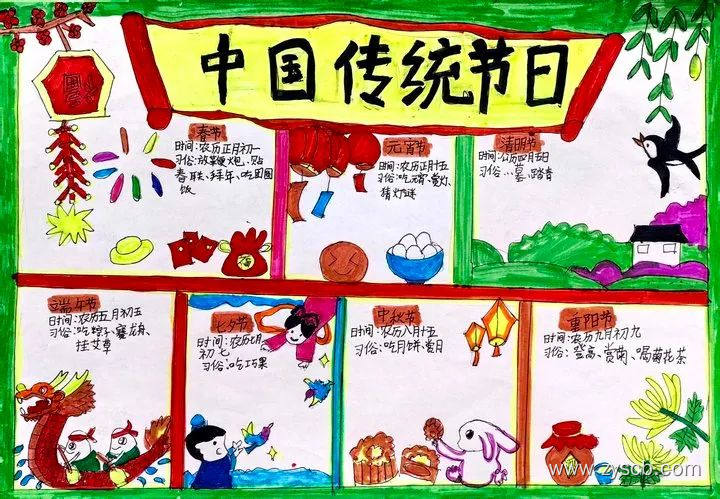 中国传统节日
春节
时间:农历正月初一
习俗:放鞭炮、贴
春联、拜年、吃团圆
饭
元宵节
时间:农历正月十五
习俗:吃元宵、赏灯、
猜灯谜
清明节
时间:公历四月五日
习俗:墓、踏青
端午节
时间:农历五月初五
习俗:吃粽子、赛龙舟、
挂艾草
七夕节
时间:农历七月
初七
习俗:吃巧果
中秋节
时间:农历八月十五
习俗:吃月饼、赏月
重阳节
时间:农历九月初九
习俗:登高、赏菊、喝菊花茶
www.zyscb.com